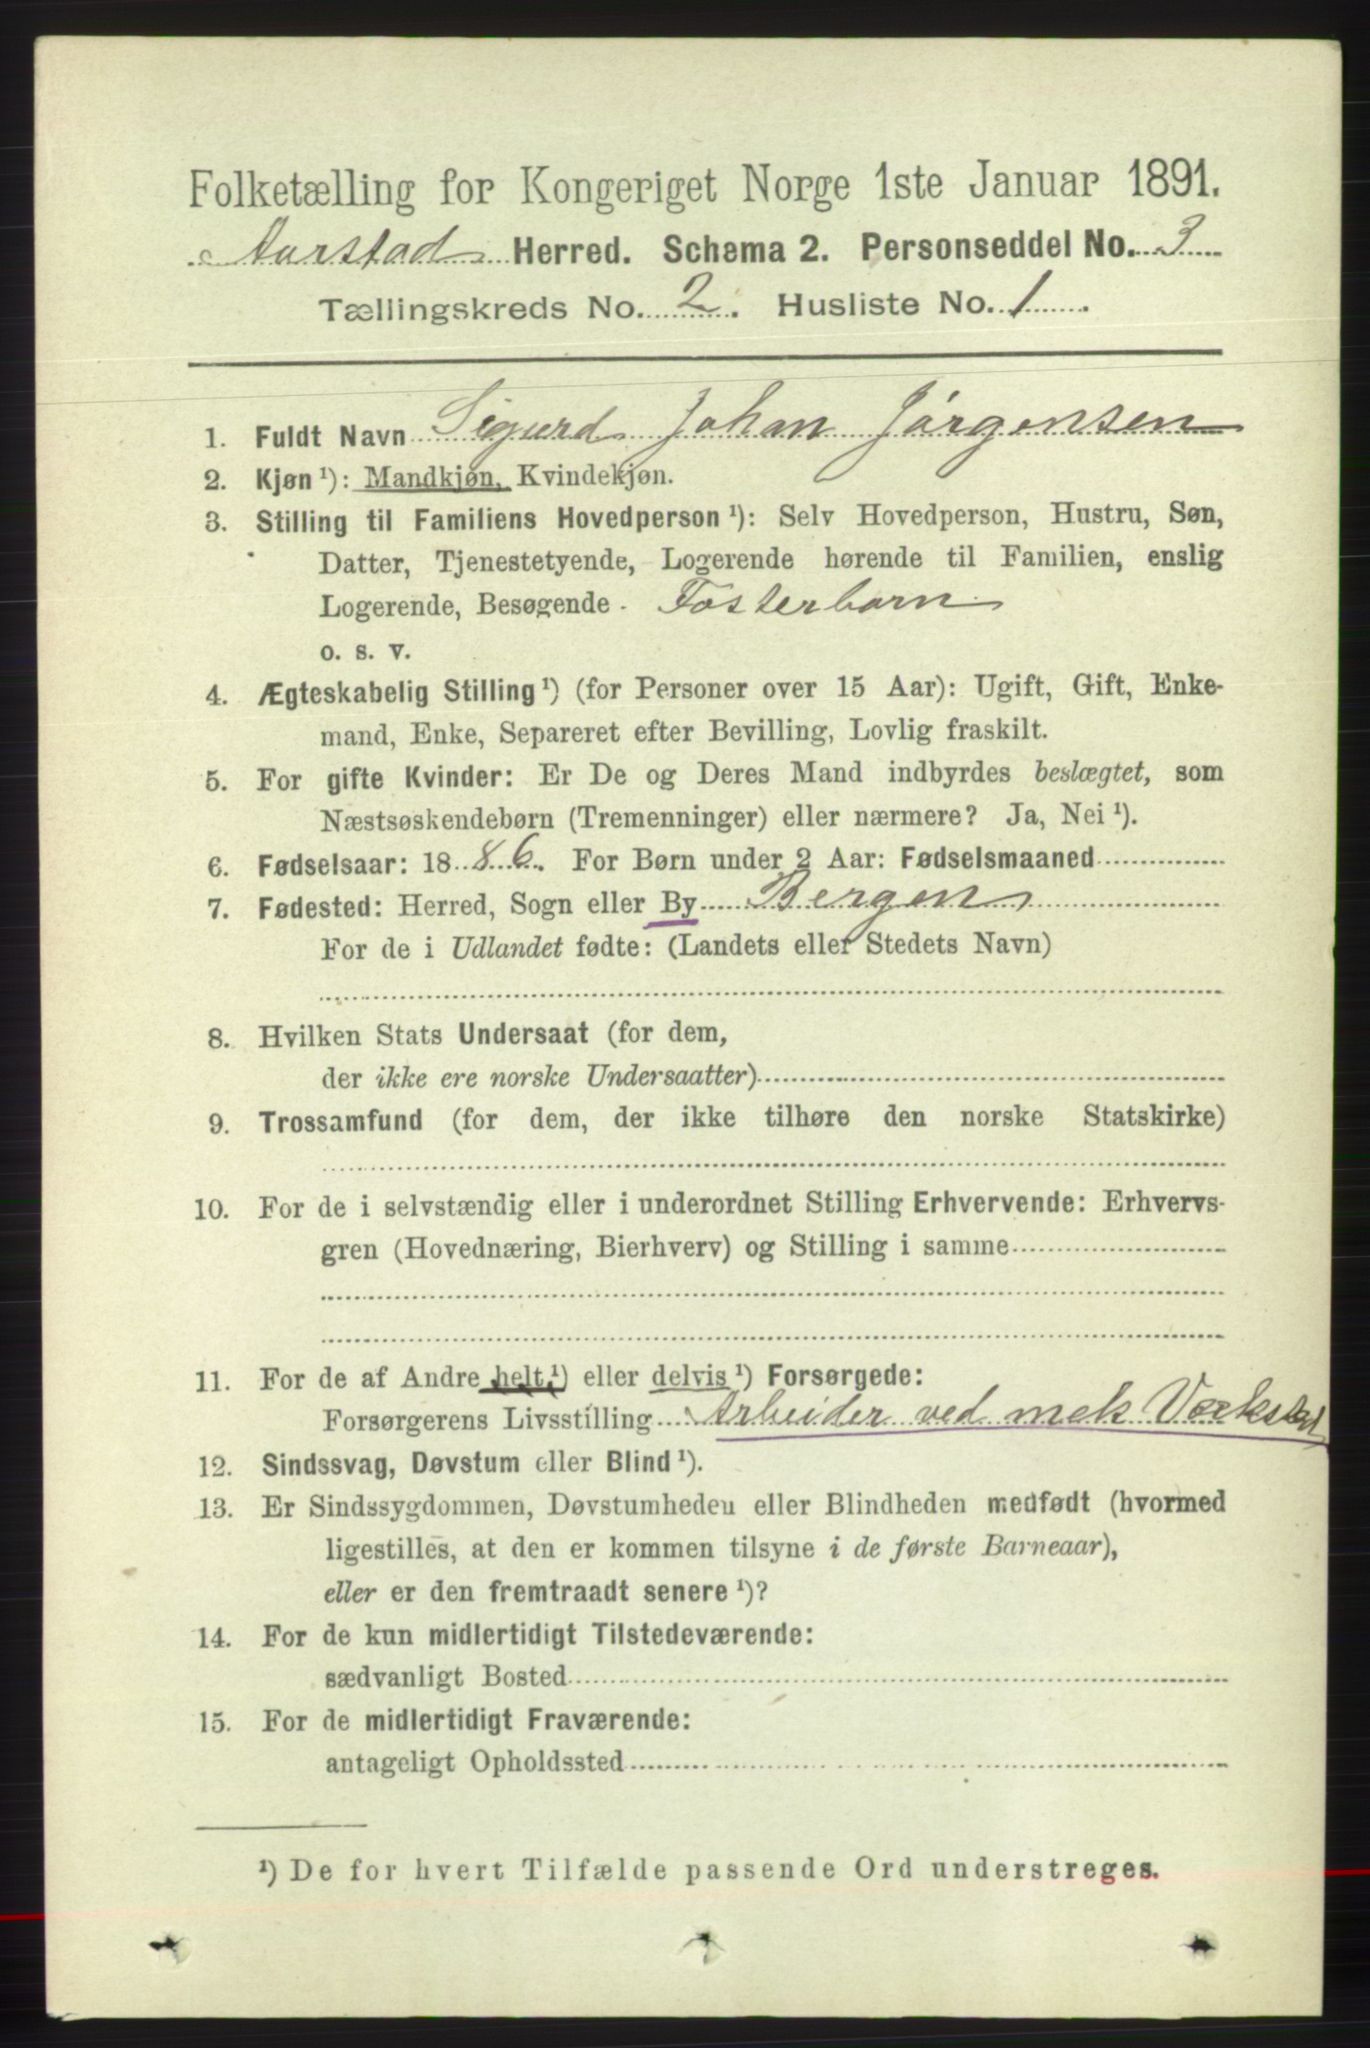 Folketælling for Kongeriget Norge 1ste Januar 1891.
Aarstad Herred. Schema 2. Personseddel No. 3
Tællingskreds No. 2. Husliste No. 1.
1. Fuldt Navn Sigurd Johan Jørgensen
2. Kjøn ¹): Mandkjøn, Kvindekjøn.
3. Stilling til Familiens Hovedperson ¹): Selv Hovedperson, Hustru, Søn,
Datter, Tjenestetyende, Logerende hørende til Familien, enslig
Logerende, Besøgende . Fosterbarn
o. s. v.
4. Ægteskabelig Stilling ¹) (for Personer over 15 Aar): Ugift, Gift, Enke-
mand, Enke, Separeret efter Bevilling, Lovlig fraskilt.
5. For gifte Kvinder: Er De og Deres Mand indbyrdes beslægtet, som
Næstsøskendebørn (Tremenninger) eller nærmere? Ja, Nei ¹).
6. Fødselsaar: 1886. For Børn under 2 Aar: Fødselsmaaned
7. Fødested: Herred, Sogn eller By Bergen
For de i Udlandet fødte: (Landets eller Stedets Navn)
8. Hvilken Stats Undersaat (for dem,
der ikke ere norske Undersaatter)
9. Trossamfund (for dem, der ikke tilhøre den norske Statskirke)
10. For de i selvstændig eller i underordnet Stilling Erhvervende: Erhvervs-
gren (Hovednæring, Bierhverv) og Stilling i samme
11. For de af Andre helt ¹) eller delvis ¹) Forsørgede:
Forsørgerens Livsstilling Arbeider ved mek Værksted
12. Sindssvag, Døvstum eller Blind ¹).
13. Er Sindssygdommen, Døvstumheden eller Blindheden medfødt (hvormed
ligestilles, at den er kommen tilsyne i de første Barneaar),
eller er den fremtraadt senere ¹)?
14. For de kun midlertidigt Tilstedeværende:
sædvanligt Bosted
15. For de midlertidigt Fraværende:
antageligt Opholdssted
¹) De for hvert Tilfælde passende Ord understreges.